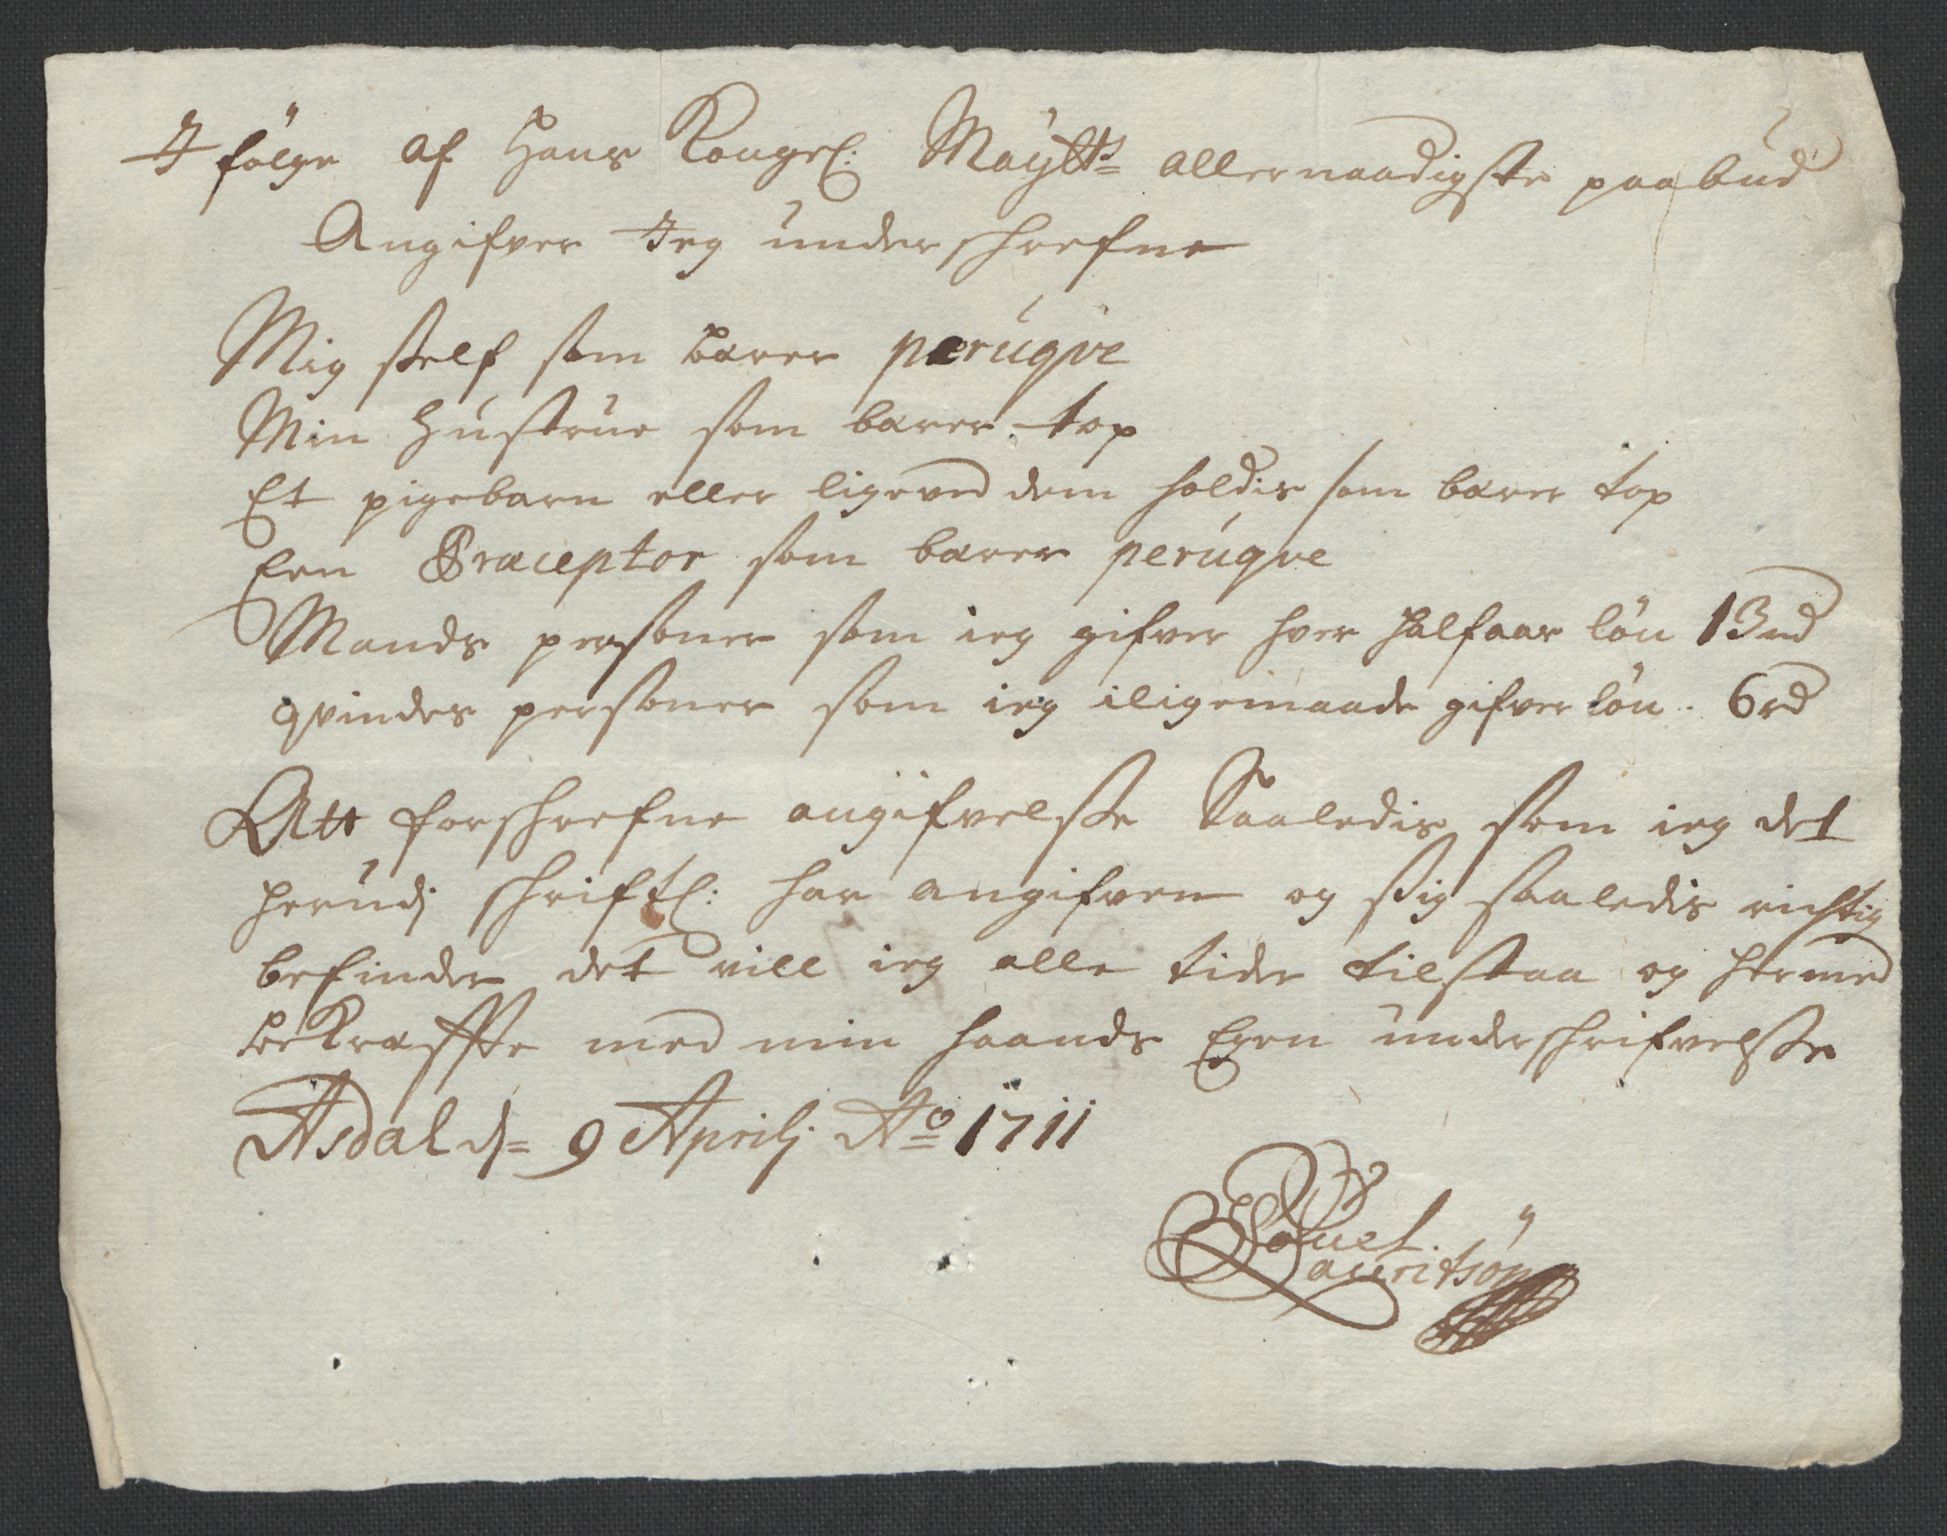 I følge af Hans Kongel: Maÿtts allernaadigste paabud
Angifver Ieg underskrefne
Mig self som bærer perúqve
Min Hustrue som bærer top
Et pigebarn eller ligeved dem holdis som bærer top
Een Præceptor som bærer perúqve
Mands personer som ieg gifver hver halfaar løn 13 rd
qvindes personer som ieg iligemaade gifver løn. 6 rd
Att forskrefne angifvelsse Saaledis som ieg det
herudj skriftl: har angifven og sig saaledis richtig
befinder det vill ieg alle tider tilstaa og hermed
bekræffte med min haands Egen underskrifvelsse
Asdal d= 9 Aprilj Ao 1711
Lauritsøn